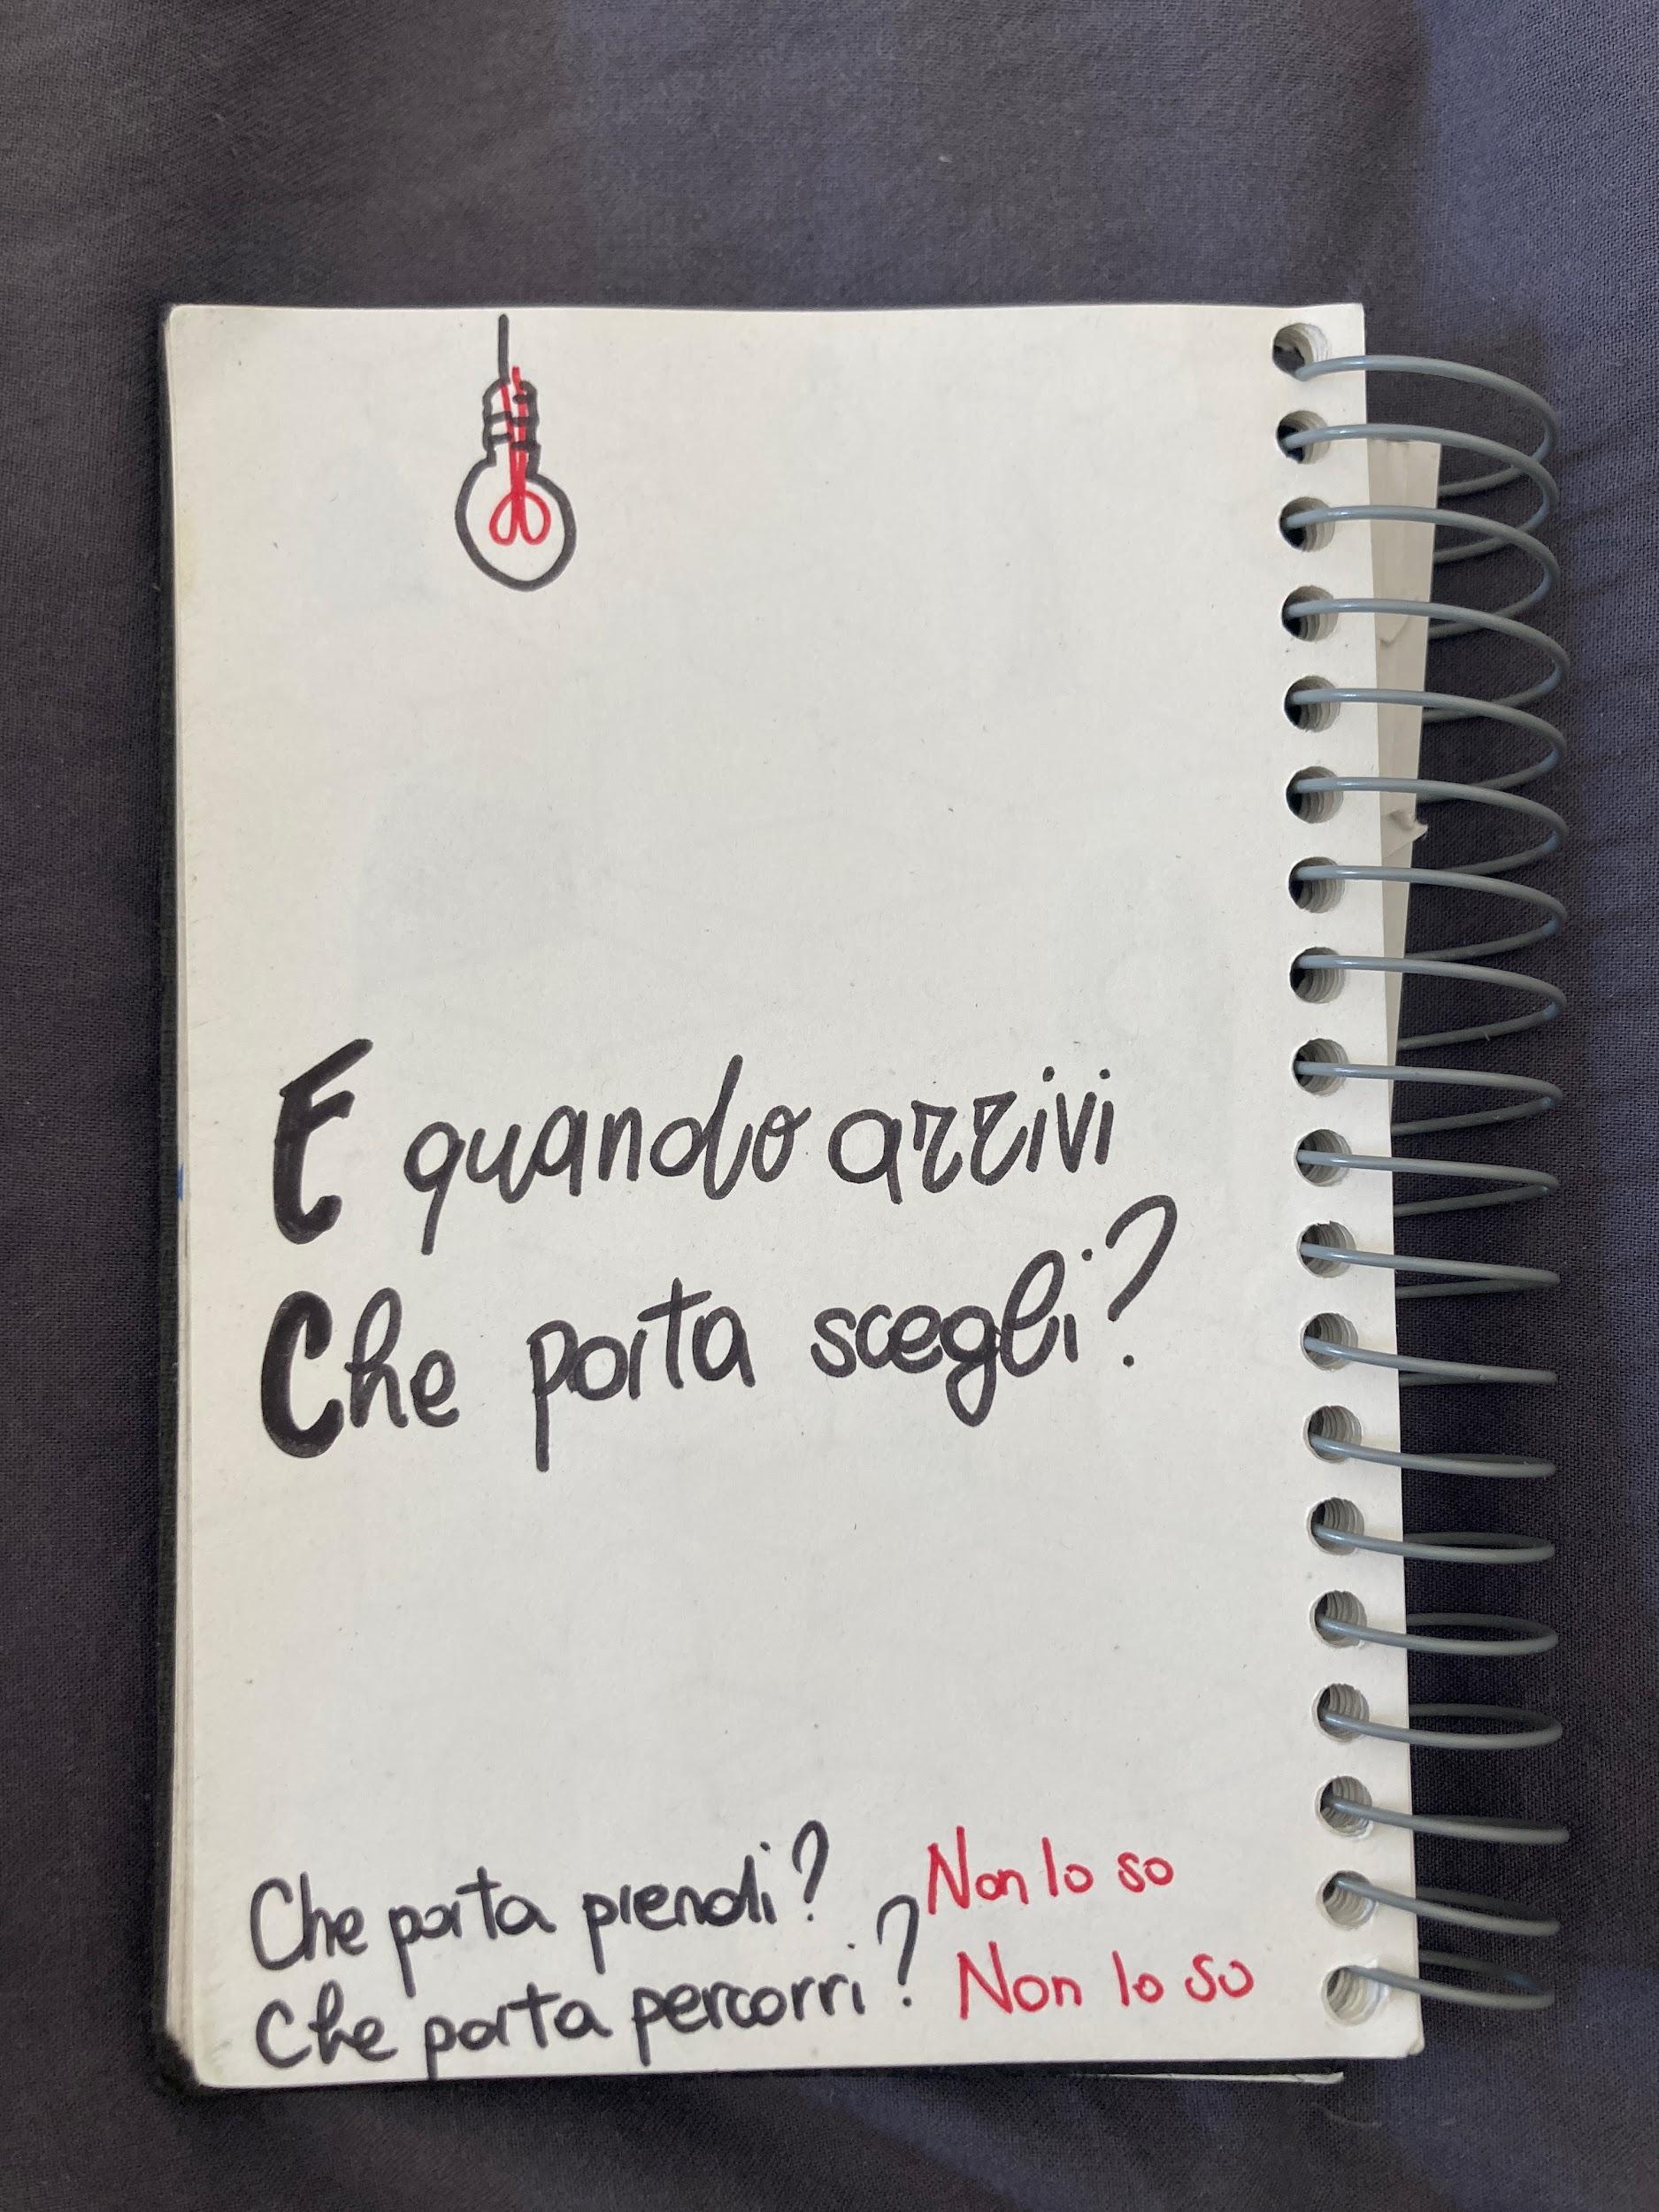 E quando arrivi
Che porta scegli?
Che porta prendi? Non lo so
Che porta percorri? Non lo so